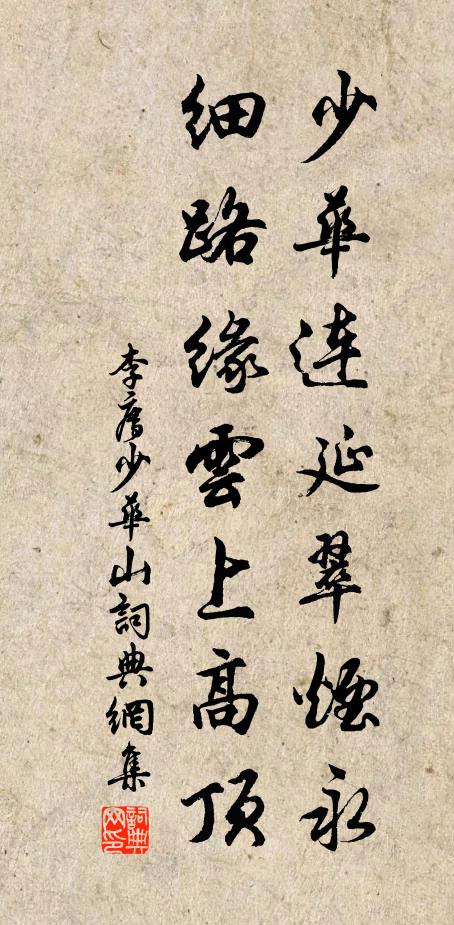 少華連延翠煙永
細路緣雲上高頂
李廌少華山詞典網集
詞典网印